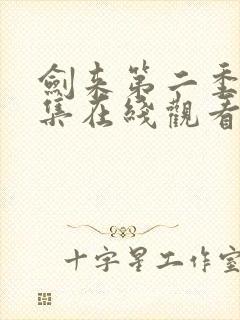 劍来第二季
集在綫觀看
十字星工作室